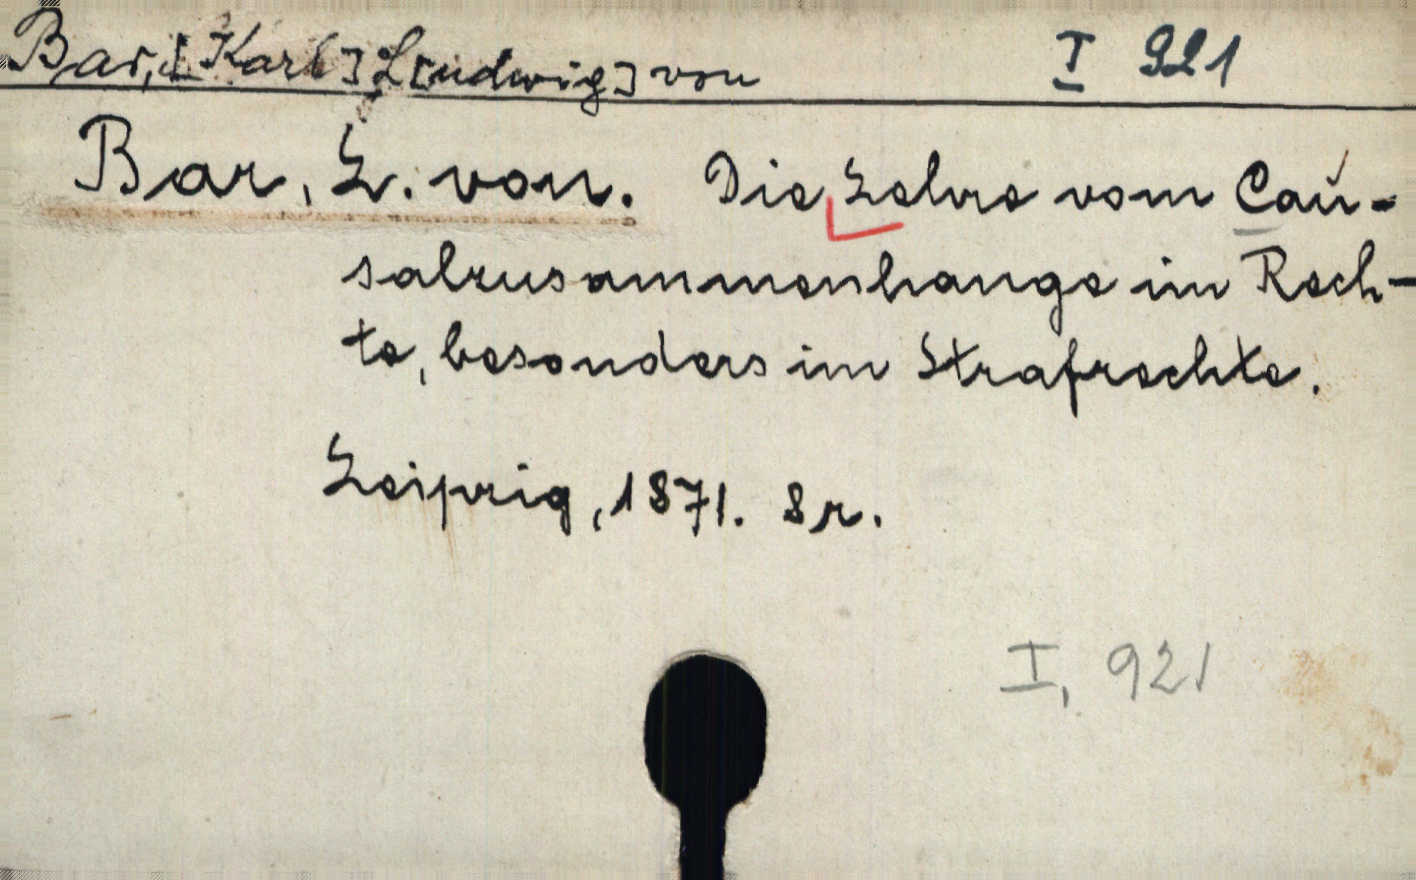 Bar, [Karl] L[udwig] von I 921
Bar, L. von. Die Lehre vom Cau-
salzusammenhange im Rech-
te, besonders im Strafrechte.
Leipzig, 1871. 8r.
I, 921